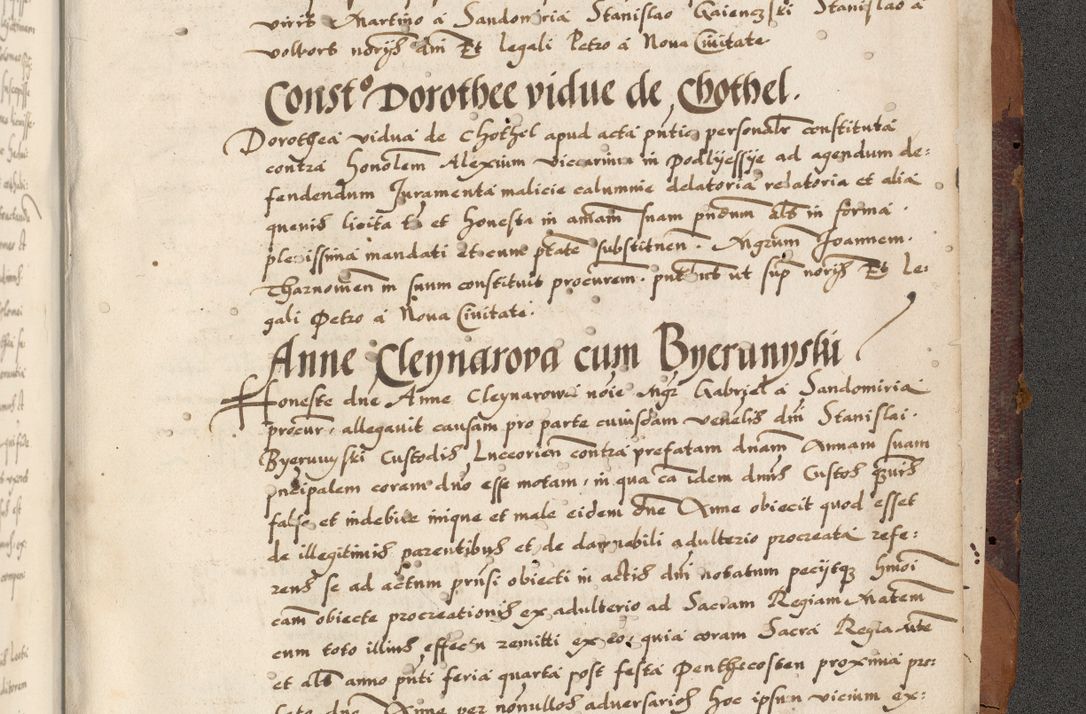 viris Martino a Sandomiria Stanislao Gaienczski Stanislao a
volbors norijs dni Et legali Petro a Nova Civitate
Constº Dorothee vidue de Chothel.
Dorothea vidua de Chothel apud acta pntia personalr constituta
contra honolem Alexium viccarium in podlyessye ad agendum de=
fendendum Juramenta malicie calumnie delatoria relatoria et alia
quevis licita tn et honesta in amam suam pndum Als in forma
plenissima mandati Et cum ptate substituen. Mgrum Joannem
Tharnowen in suum constituit procurem. put ut sup norijs Et le=
gali Petro a Nova Civitate.
Anne Cleynarova cum Byerunyski
Honeste dne Anne Cleynarowa noie Mgr Gabriel a Sandomiria
procur. allegavit causam pro parte cuiusdam venelis dni Stanislai
Byerunyski Custodis Luceorien contra prefatam dnam Annam suam
pncipalem coram dno esse motam, in qua ca idem dnus Custos
false et indebite inique et male eidem dne Anne obiecit quod esset
de illegitimis parentibus et de damnabili adulterio procreata refe=
rens se ad actum prnsi obiecti in actis dni notatum peciitq hmoi
cam obiecte procreationis ex adulterio ad Sacram Regiam Matem
cum toto illius effectu remitti ex eo, quia coram Sacra Regia Mte
et als anno pnti feria quarta post festa Penthecosten proxima pre=
dna Anne per nonullos adversarios hoc ipsum vicium ex=